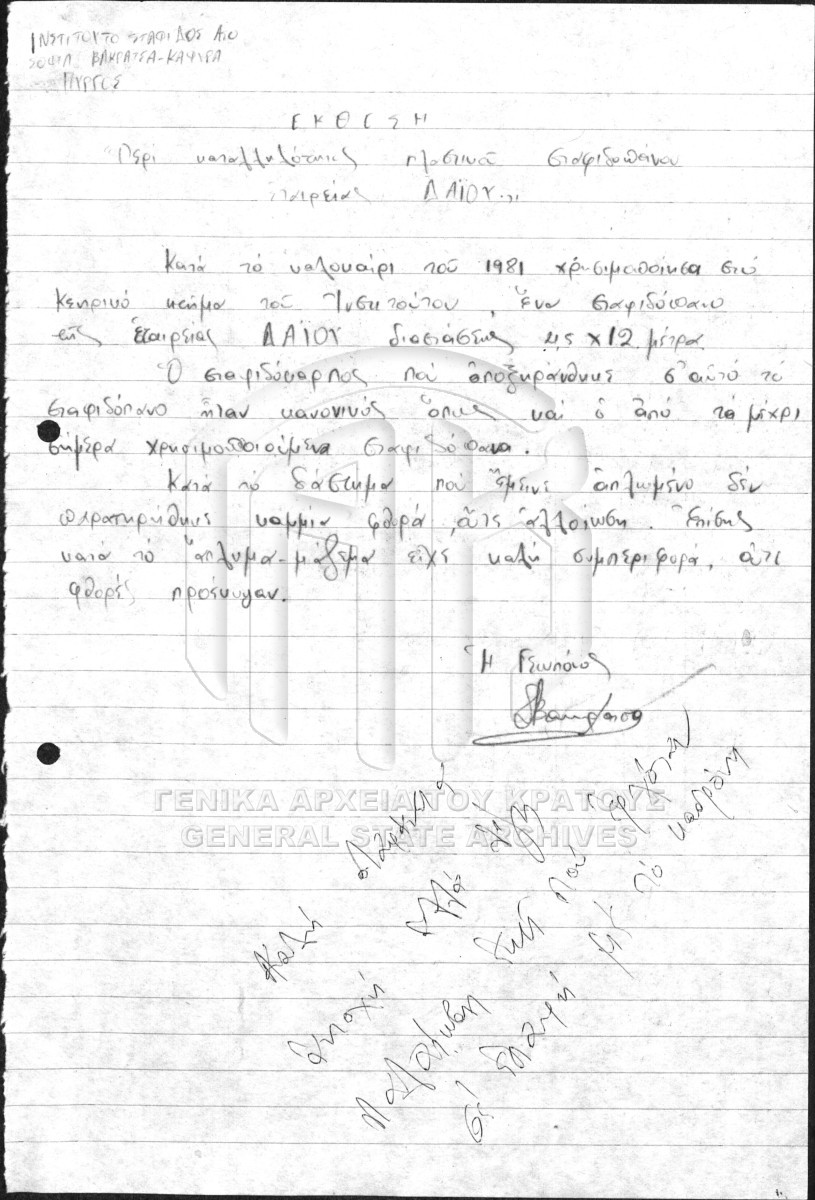 ΙΝΣΤΙΤΟΥΤΟ ΣΤΑΦΙΔΟΣ ΑΣΟ
ΣΟΦΙΑ ΒΛΑΓΚΑΤΣΑ-ΚΑΨΥΡΑ
ΠΥΡΓΟΣ
ΕΚΘΕΣΗ
Περί καταλληλότητας πλαστικοῦ σταφιδοπάνου
Ἑταιρείας ΔΑΪΟΥ
Κατά τό καλοκαίρι τοῦ 1981 χρησιμοποίησα στό
Κεντρικό κτῆμα τοῦ Ἰνστιτούτου, ἕνα σταφιδόπανο
τῆς ἑταιρείας ΔΑΪΟΥ διαστάσεως x12 μέτρα
Ὁ σταφιδόκαρπος πού ἀποξηράνθηκε σ' αὐτό τό
σταφιδόπανο ἦταν κανονικός ὅπως καί ὁ ἀπό τά μέχρι
σήμερα χρησιμοποιούμενα σταφιδόπανα.
Κατά τό διάστημα πού ἔμεινε ἁπλωμένο δέν
παρατηρήθηκε καμμία φθορά, οὔτε ἀλλοίωση. Ἐπίσης
κατά τό ἅπλωμα-μάζεμα εἶχε καλή συμπεριφορά, οὔτε
φθορές προέκυψαν.
Ἡ Γεωπόνος
Καλή
ἀντοχή ἀλλά
ἐκεῖ πού ἐρχόταν
σέ ἐπαφή μέ τό
ΓΕΝΙΚΑ ΑΡΧΕΙΑ ΤΟΥ ΚΡΑΤΟΥΣ
GENERAL STATE ARCHIVES